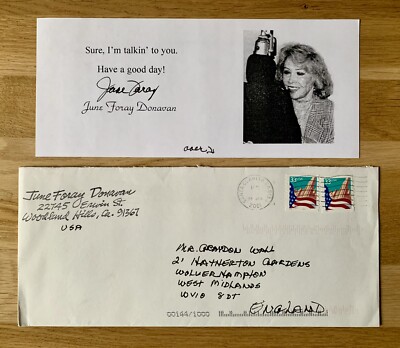 Sure, I'm talkin' to you.
Have a good day!
June Foray
June Foray Donavan
over
June Foray Donavan
22745 Erwin St.
Woodland Hills, Ca. 91367
USA
33
33
2001
Mr. Graydon Wall
21 Haynerton Gardens
Wolverhampton
West Midlands
WV10 8DT
England
00144/1000